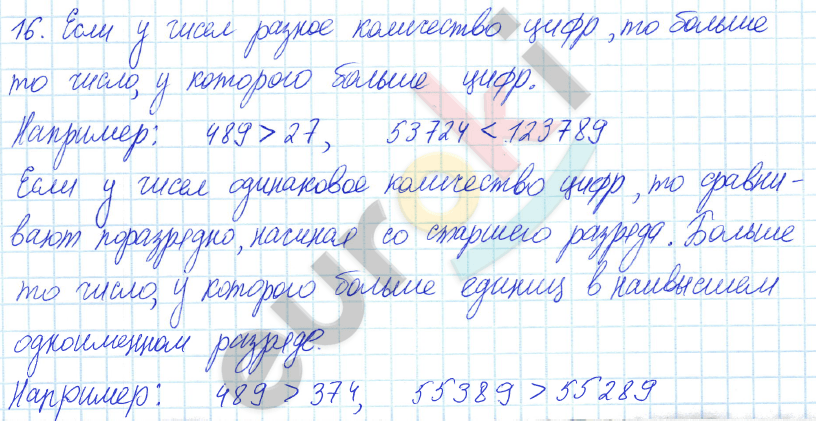 16. Если у чисел разное количество цифр, то больше
то число, у которого больше цифр.
Например: 489 > 27, 53724 < 123789
Если у чисел одинаковое количество цифр, то сравни-
вают поразрядно, начиная со старшего разряда. Больше
то число, у которого больше единиц в наивысшем
одноименном разряде.
Например: 489 > 374, 55389 > 55289
euroki